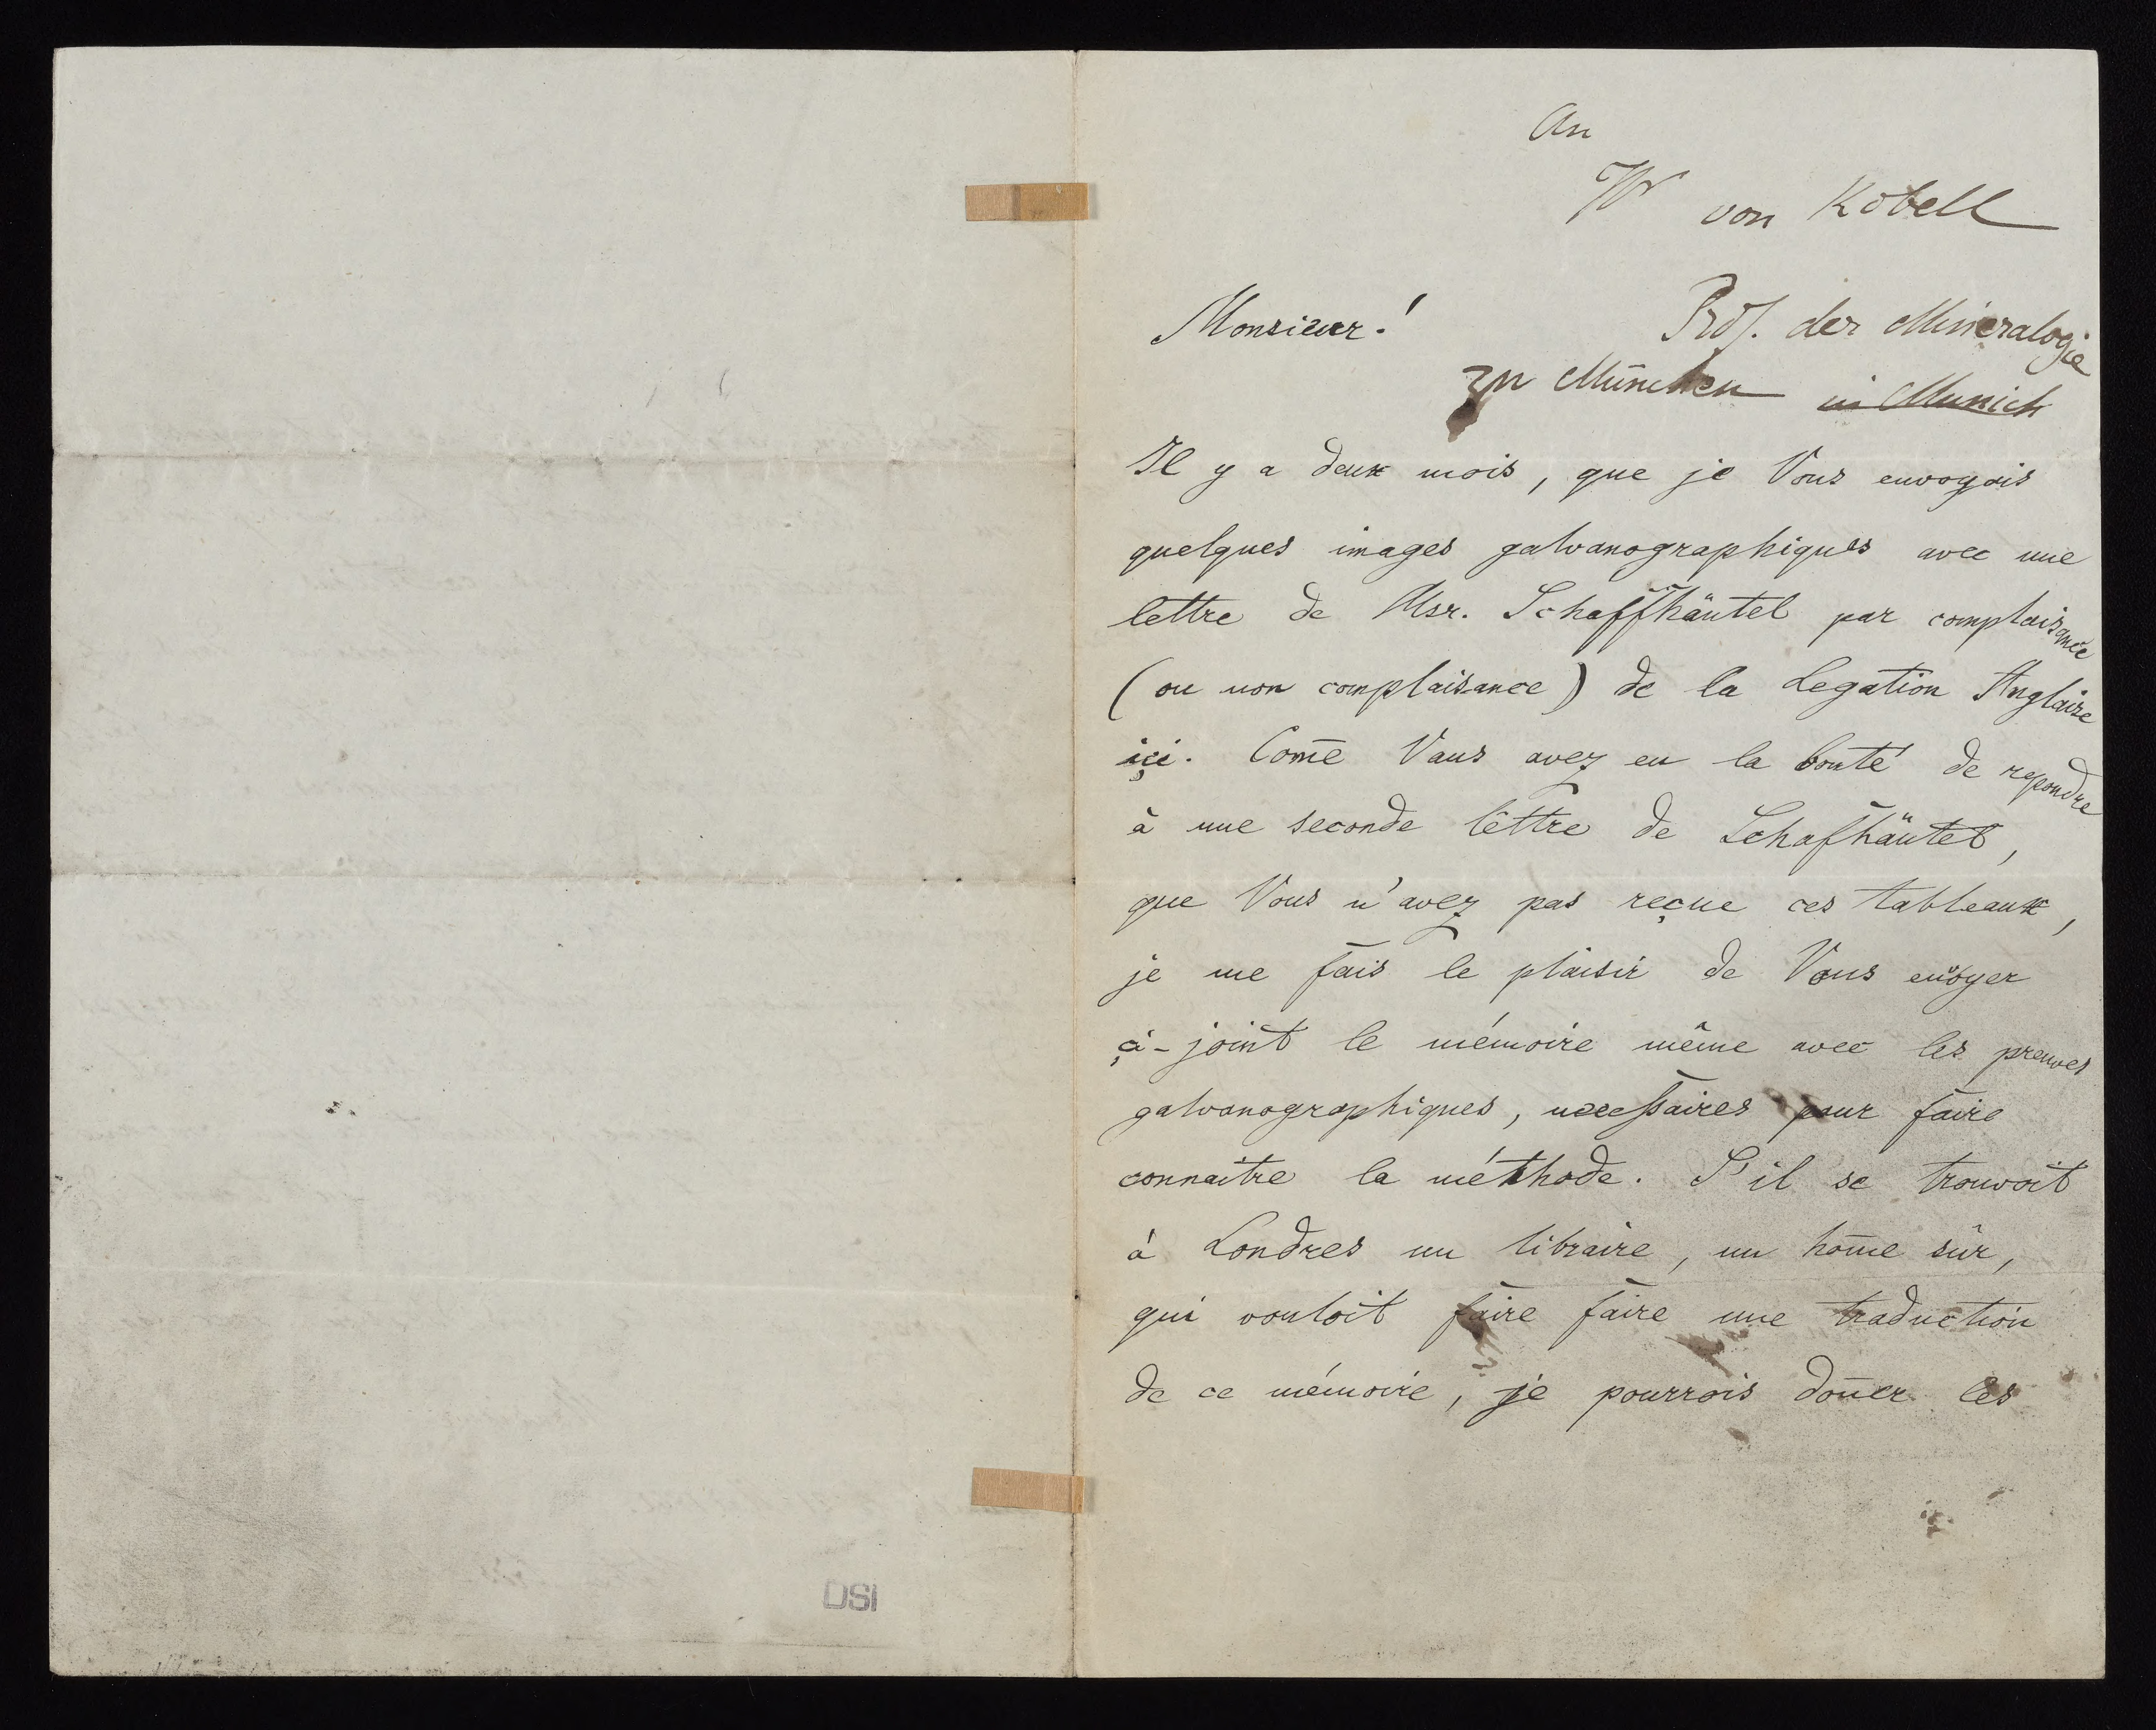 An
W von Kobell
Monsieur!
Prof. der Mineralogie
zu München in Munich
Il y a deux mois, que je Vous envoyois
quelques images galvanographiques avec une
lettre de Msr. Schaffhäutel par complaisance
(ou non complaisance) de la Legation Anglaise
içi. Com̄e Vous avez eu la bonté de repondre
à une seconde lettre de Schafhäutel,
que Vous n'avez pas reçue ces tableaux,
je me fais le plaisir de Vous envoyer
çi-joint le mémoire même avec les preuves
galvanographiques, necessaires pour faire
connaitre la méthode. S'il se trouvoit
à Londres un libraire, un hom̄e sûr,
qui vouloit faire faire une traduction
de ce mémoire, je pourrois don̄er les
DSI